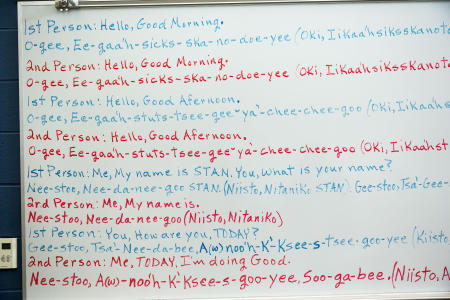 1st Person: Hello, Good Morning.
O-gee, Ee-gaa'h-sicks-ska-no-doe-yee (Oki, Iikaa'hsiksskanoto
2nd Person: Hello, Good Morning.
O-gee, Ee-gaa'h-sicks-ska-no-doe-yee (Oki, Iikaa'hsiksskanoto
1st Person: Hello, Good Afernoon.
O-gee, Ee-gaa'h-stuts-tsee-gee-ya'-chee-chee-goo (Oki, Ii
2nd Person: Hello, Good Afernoon.
O-gee, Ee-gaa'h-stuts-tsee-gee-ya'-chee-chee-goo (Oki, Iikaa'hst
1st Person: Me, My name is STAN. You, What is your name?
Nee-stoo, Nee-da-nee-goo STAN. (Niisto, Nitaniko STAN). Gee-stoo, Tsa'-Gee-
2rd Person: Me, My name is.
Nee-stoo, Nee-da-nee-goo (Niisto, Nitaniko)
1st Person: You, How are you, TODAY?
Gee-stoo, Tsa'-Nee-da-bee, A(w)-noo'h-K'-Ksee-s-tsee-goo-yee (Kiisto,
2nd Person: Me, TODAY, I'm doing Good.
Nee-stoo, A(w)-noo'h-K'-Ksee-s-goo-yee, Soo-ga-bee. (Niisto, A